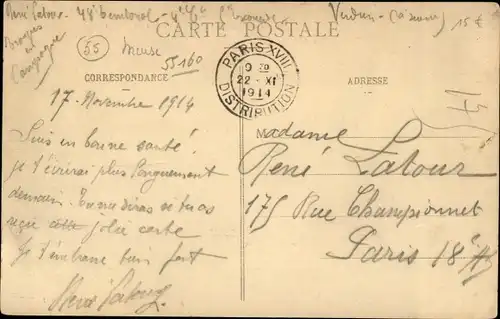 René Latour - 48e Territorial -
Verdun - (à suivre) 15€
Troupes
en
Campagne
CARTE POSTALE
55
Meuse
55160
CORRESPONDANCE
ADRESSE
PARIS XVIII
9 30
22 - XI
1914
DISTRIBUTION
17 - Novembre 1914
Suis en bonne santé!
je t'écrirai plus longuement
demain. Tu me diras si tu as
reçu jolie carte
Je t'embrasse bien fort
René Latour
Madame
René Latour
175 Rue Championnet
Paris 18e